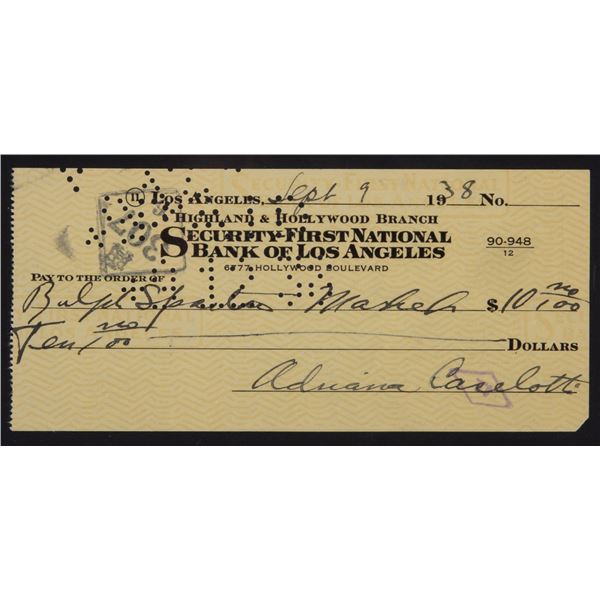 11 Los Angeles, Sept 9 1938 No.
Highland & Hollywood Branch
Security-First National
Bank of Los Angeles
90-948
12
6777 Hollywood Boulevard
Pay to the order of
Market $10 no/100
Ten no/100 Dollars
Adriana Caselotti